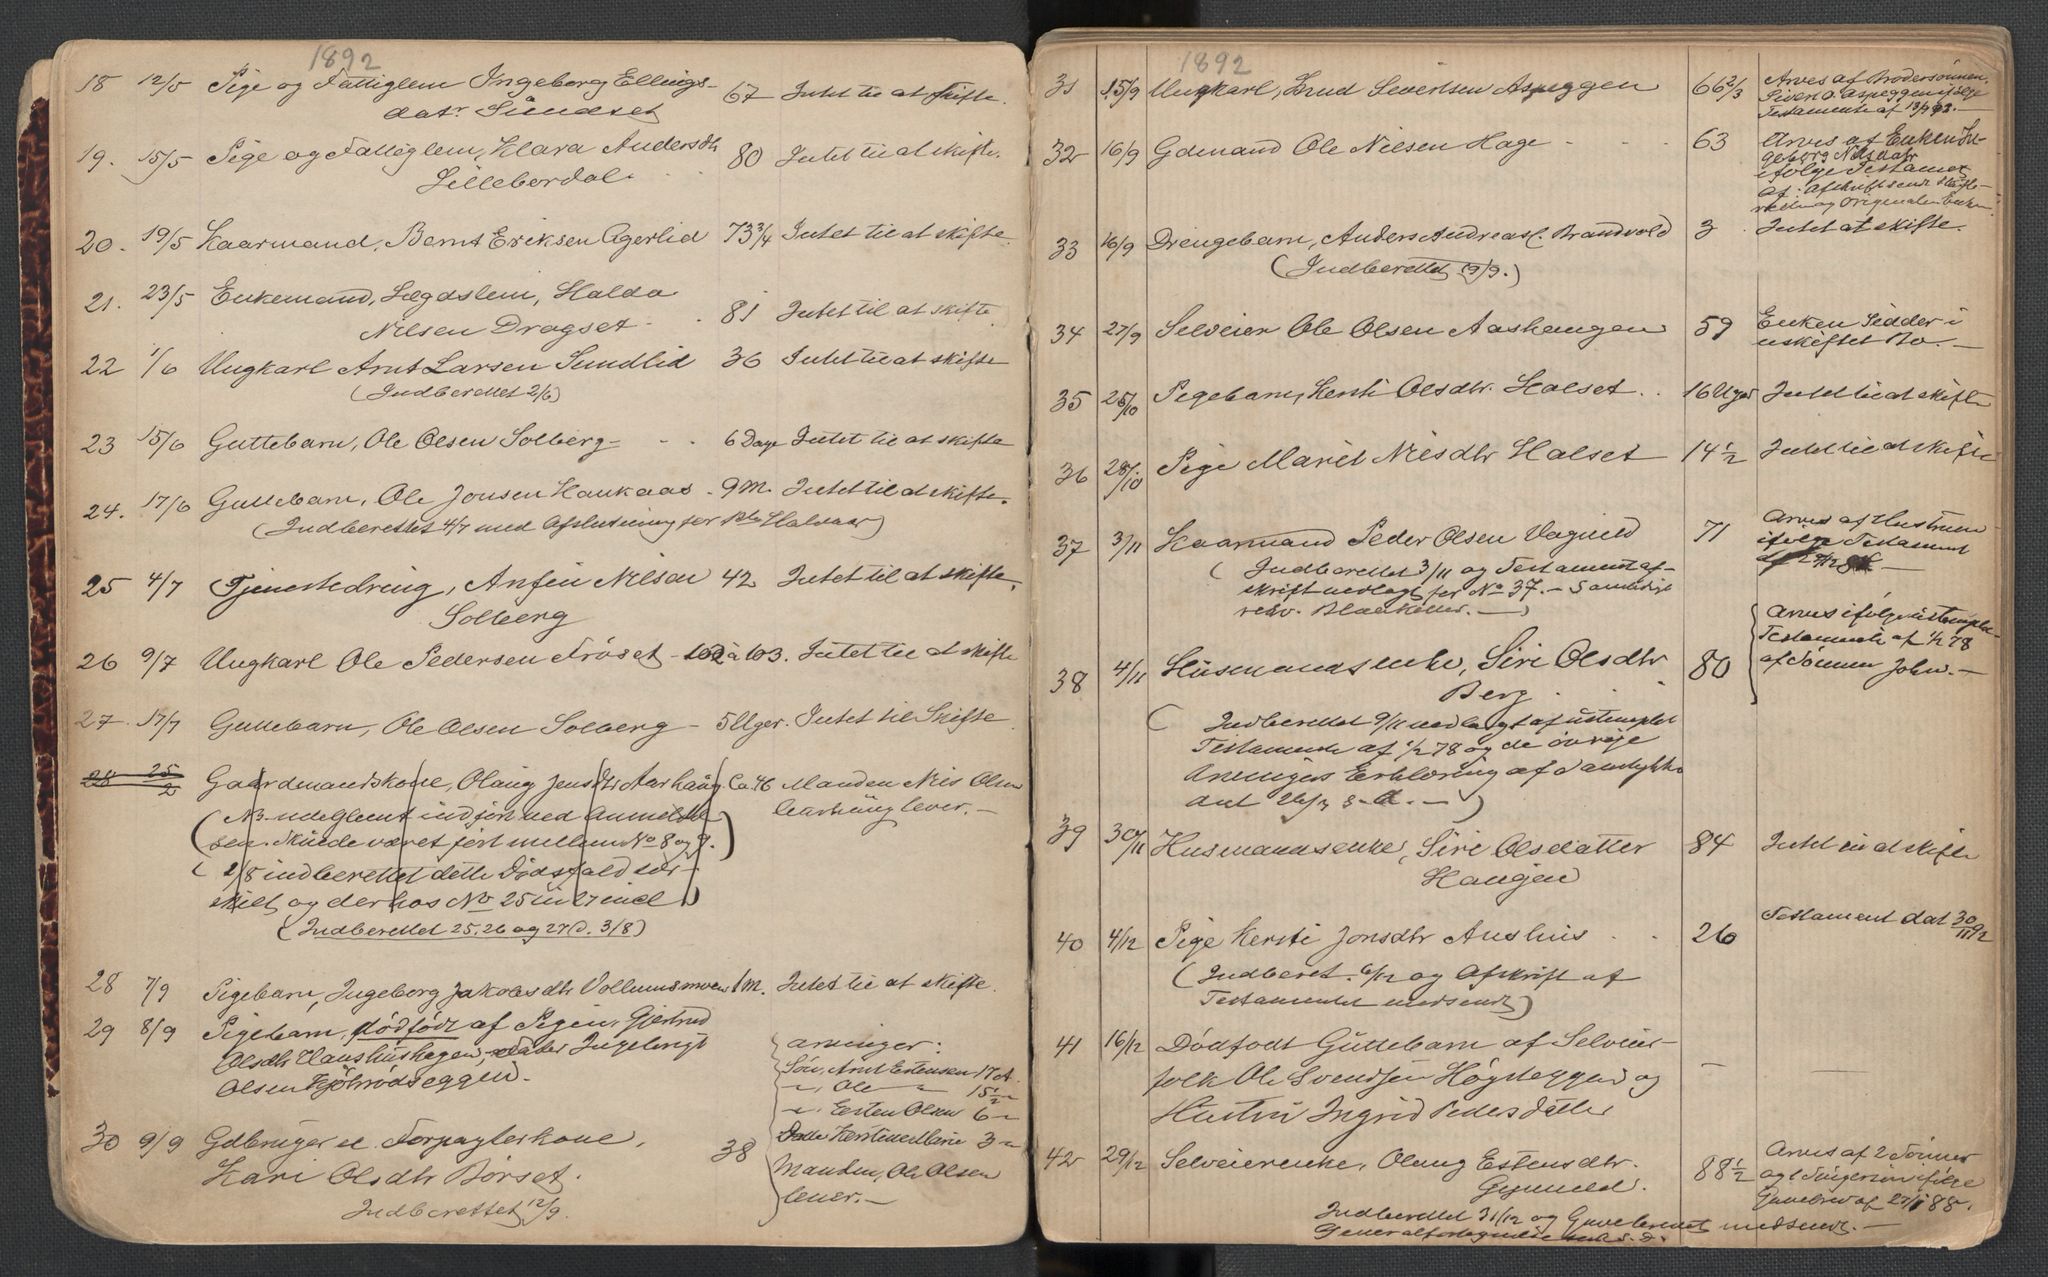 1892
18 12/5 Pige og Fattiglem Ingeborg Ellings-
datr Sundset 67 Intet til at skifte.
19. 15/5 Pige og Fattiglem, Klara Andersdtr
Lillebordal. 80 Intet til at skifte.
20. 19/5 Kaarmand, Bernt Eriksen Agerlid 73 3/4 Intet til at skifte.
21. 23/5 Enkemand, Lægdslem, Haldo
Nilsen Dragset - 81 Intet til at skifte
22 1/6 Ungkarl Arnt Larsen Sundlid 36 Intet til at skifte
(Indberettet 2/6)
23 15/6 Guttebarn, Ole Olsen Solberg - 6 Dage Intet til at skifte
24. 17/6 Guttebarn, Ole Jonsen Haukaas - 9 M. Intet til at skifte.
(Indberettet 4/7 med Afslutning for
25 4/7 Tjenestedreng, Anfin Nilsen 42 Intet til at skifte.
Solberg
26 9/7 Ungkarl Ole Pedersen Frøset - 102 à 103. Intet til at skifte
27. 17/7 Guttebarn, Ole Olsen Solberg - 5 Uger. Intet til Skifte
28 25/2 Gaardmandskone, Olaug Jensdtr Aarhaug. Ca. 46 Manden Nils Olsen
Aarhaug lever. -
(NB. udeglemt indført ved Anmeldel-
sen. Skulde været ført mellem No 8 og 9.)
(2/8 indberettet dette Dødsfald sær-
skilt og derhos No 25 til 27 incl)
(Indberettet 25, 26 og 27 D. 3/8)
28 7/9 Pigebarn, Ingeborg Jakobsdtr Vollumsmoen 1 M. Intet til at skifte.
29 8/9 Pigebarn, dødfødt af Pigen Gjertrud
Olsdtr Haushushagen - Fader Ingebrigt
Olsen Kjølrødseggen.
30 9/9 Gdbruger el. Forpagterkone,
Kari Olsdtr Børset. 38
Indberettet 12/9.
Arvinger:
Søn, Arnt Estensen 17 A.
" Ole " 15 1/2 "
" Esten Olsen 6 "
Datter Kerstine Marie 3 "
Manden, Ole Olsen
lever. -
1892
31 15/9 Ungkarl, Knud Sivertsen Aspeggen 66 2/3 Arves af Brodersønnen
Sivert O. Aspeggen ifølge
Testamente af
32 16/9 Gdmand Ole Nilsen Hage - - - 63 Arves af Enken In-
geborg Nilsdatr
ifølge Testament
af. Afskrift sendt Skifte-
retten og Originalen Enken.
33 16/9 Drengebarn, Anders Andreas. Brandvold 3 Intet at skifte.
(Indberettet 19/9.)
34 27/9 Selveier Ole Olsen Aashaugen 59 Enken sidder i
uskiftet Bo. -
35 25/10 Pigebarn, Kersti Olsdtr. Halset. . 16 Uger Intet til at skifte
36 28/10 Pige Marit Nilsdtr Halset 14 1/2 Intet til at skifte
37 3/11 Kaarmand Peder Olsen Vognild 71 Arves af Hustruen
ifølge Testament
af
(Indberettet 3/11 og Testamentaf-
skrift vedlagt for No 37. - Samtidigt
rekv. Blanketter. -)
38 4/11 Husmandsenke, Siri Olsdtr
Berg. 80 Arves ifølge ustemplet
Testamente af 1/2 78
af Sønnen John. -
(Indberettet 9/11 vedlagt af ustemplet
Testamente af 1/2 78 og de øvrige
Arvingers Erklæring af Samtykke
dat
39 30/11 Husmandsenke, Siri Olsdatter
Haugen 84 Intet til at skifte
40 4/12 Pige Kersti Jonsdtr Aushus . . 26 Testament dat 30/11 92
(Indberet. 6/12 og Afskrift af
Testamentet medsendt)
41 16/12 Dødfødt Guttebarn af Selveier-
folk Ole Svendsen Høgseggen og
Hustru Ingrid Pedersdatter
42 29/12 Selveierenke, Olaug Estensdtr.
Gjeneld. 88 1/2 Arves af 2 Sønner
ifølge
Gavebrev af
Indberettet 31/12 og Gavebrevet medsendt. -